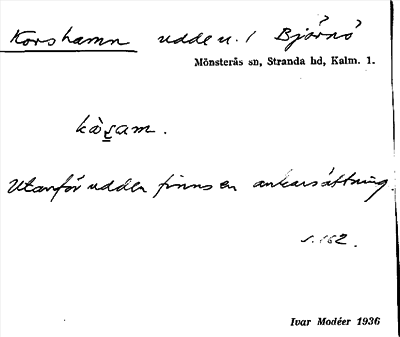 Korshamn udde n. / Björnö
Mönsterås sn, Stranda hd, Kalm. 1.
kàs̲am.
Utanför udden finns en ankarsättning
s. 162.
Ivar Modéer 1936